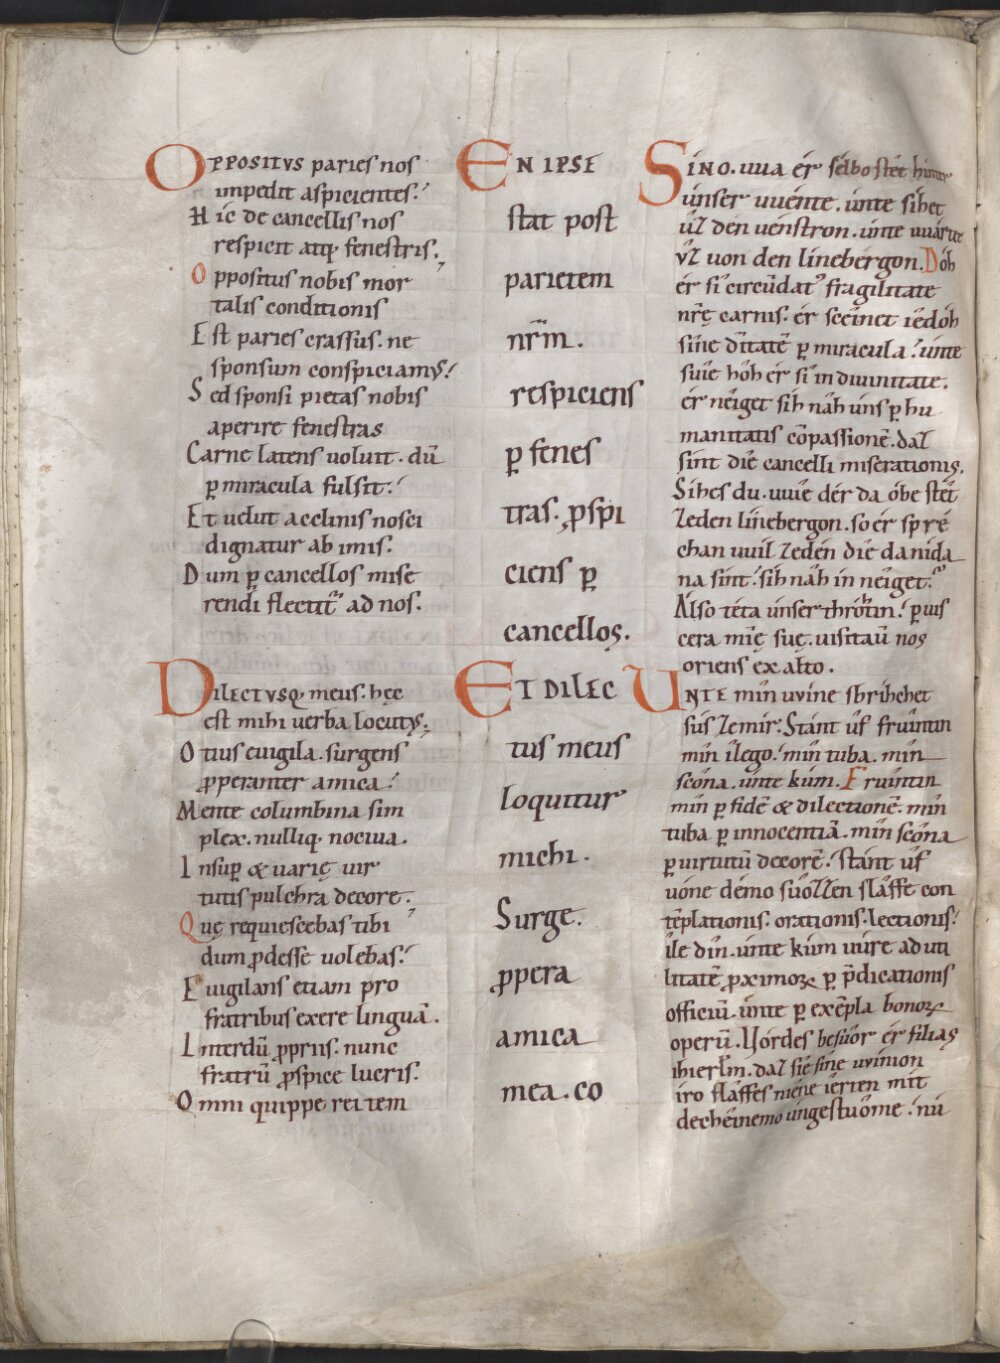 OPPOSITVS paries nos
impedit aspicientes.
Hic de cancellis nos
respicit atq; fenestris.
Oppositus nobis mor
talis conditionis
Est paries crassus. ne
sponsum conspiciamꝰ.
Sed sponsi pietas nobis
aperire fenestras
Carne latens uoluit. dū
ꝑ miracula fulsit.
Et uelut acclinis nosci
dignatur ab imis.
Dum ꝑ cancellos mise
rendi flectit᷑ ad nos.
DILECTVSQ; meus. hęc
est mihi uerba locutꝰ.
Otius euigila. surgens
ꝓperanter amica.
Mente columbina sim
plex. nulliq; nociua.
Insuꝑ & uarię uir
tutis pulchra decore.
Quę requiescebas tibi
dum ꝓdesse uolebas.
Euigilans etiam pro
fratribus exere linguā.
Interdū ꝓpriis. nunc
fratrū ꝓspice lucris.
Omni quippe rei tem
EN IPSE
stat post
parietem
nr̄m.
respiciens
ꝑ fenes
tras. ꝓspi
ciens ꝑ
cancellos.
ET DILEC
tus meus
loquitur
michi.
Surge.
ꝓpera
amica
mea. co
SINO. uua ér sélbo stét hinter
únser uuénte. únte síhet
ûz den uénstron. únte uuárte
ûz uon den línebérgon. Dóh
ér sí circūdat᷑ fragilitate
nr̄ę carnis. ér scéinet iédóh
síne dītatē ꝑ miracula. únte
suíe hôh ér sí in diuinitate.
ér néiget síh nâh úns ꝑ hu
manitatis cōpassionē. daz
sint díe cancelli miserationis.
Síhes du. uuíe dér da óbe stét
zeden línebergon. so ér spré
chan uuil zedén díe da nída
na sint. síh nâh in néiget.
Álso téta únser thróhtin. ꝑ uis
cera mię suę. uisitauit nos
oriens ex alto.
UNTE mîn uvine sbríhchet
sús zemir. Stánt ûf frûintin
mîn île go. mîn tuba. mîn
scôna. únte kum. Fruintin
mîn ꝑ fidē & dilectionē. mîn
tuba ꝑ innocentiā. mîn scôna
ꝑ uirtutū decorē. stánt ûf
uóne démo suózzen slâffe con
tēplationis. orationis. lectionis.
île dîn. únte kúm uúre ad uti
litatē ꝓximoꝝ ꝑ p̄dicationis
officiū. únte ꝑ exēpla bonoꝝ
operū.
ihierl̄m. daz síe síne uvínion
iro slâffes niéne iérren mit
dechéinemo úngestuôme. nú